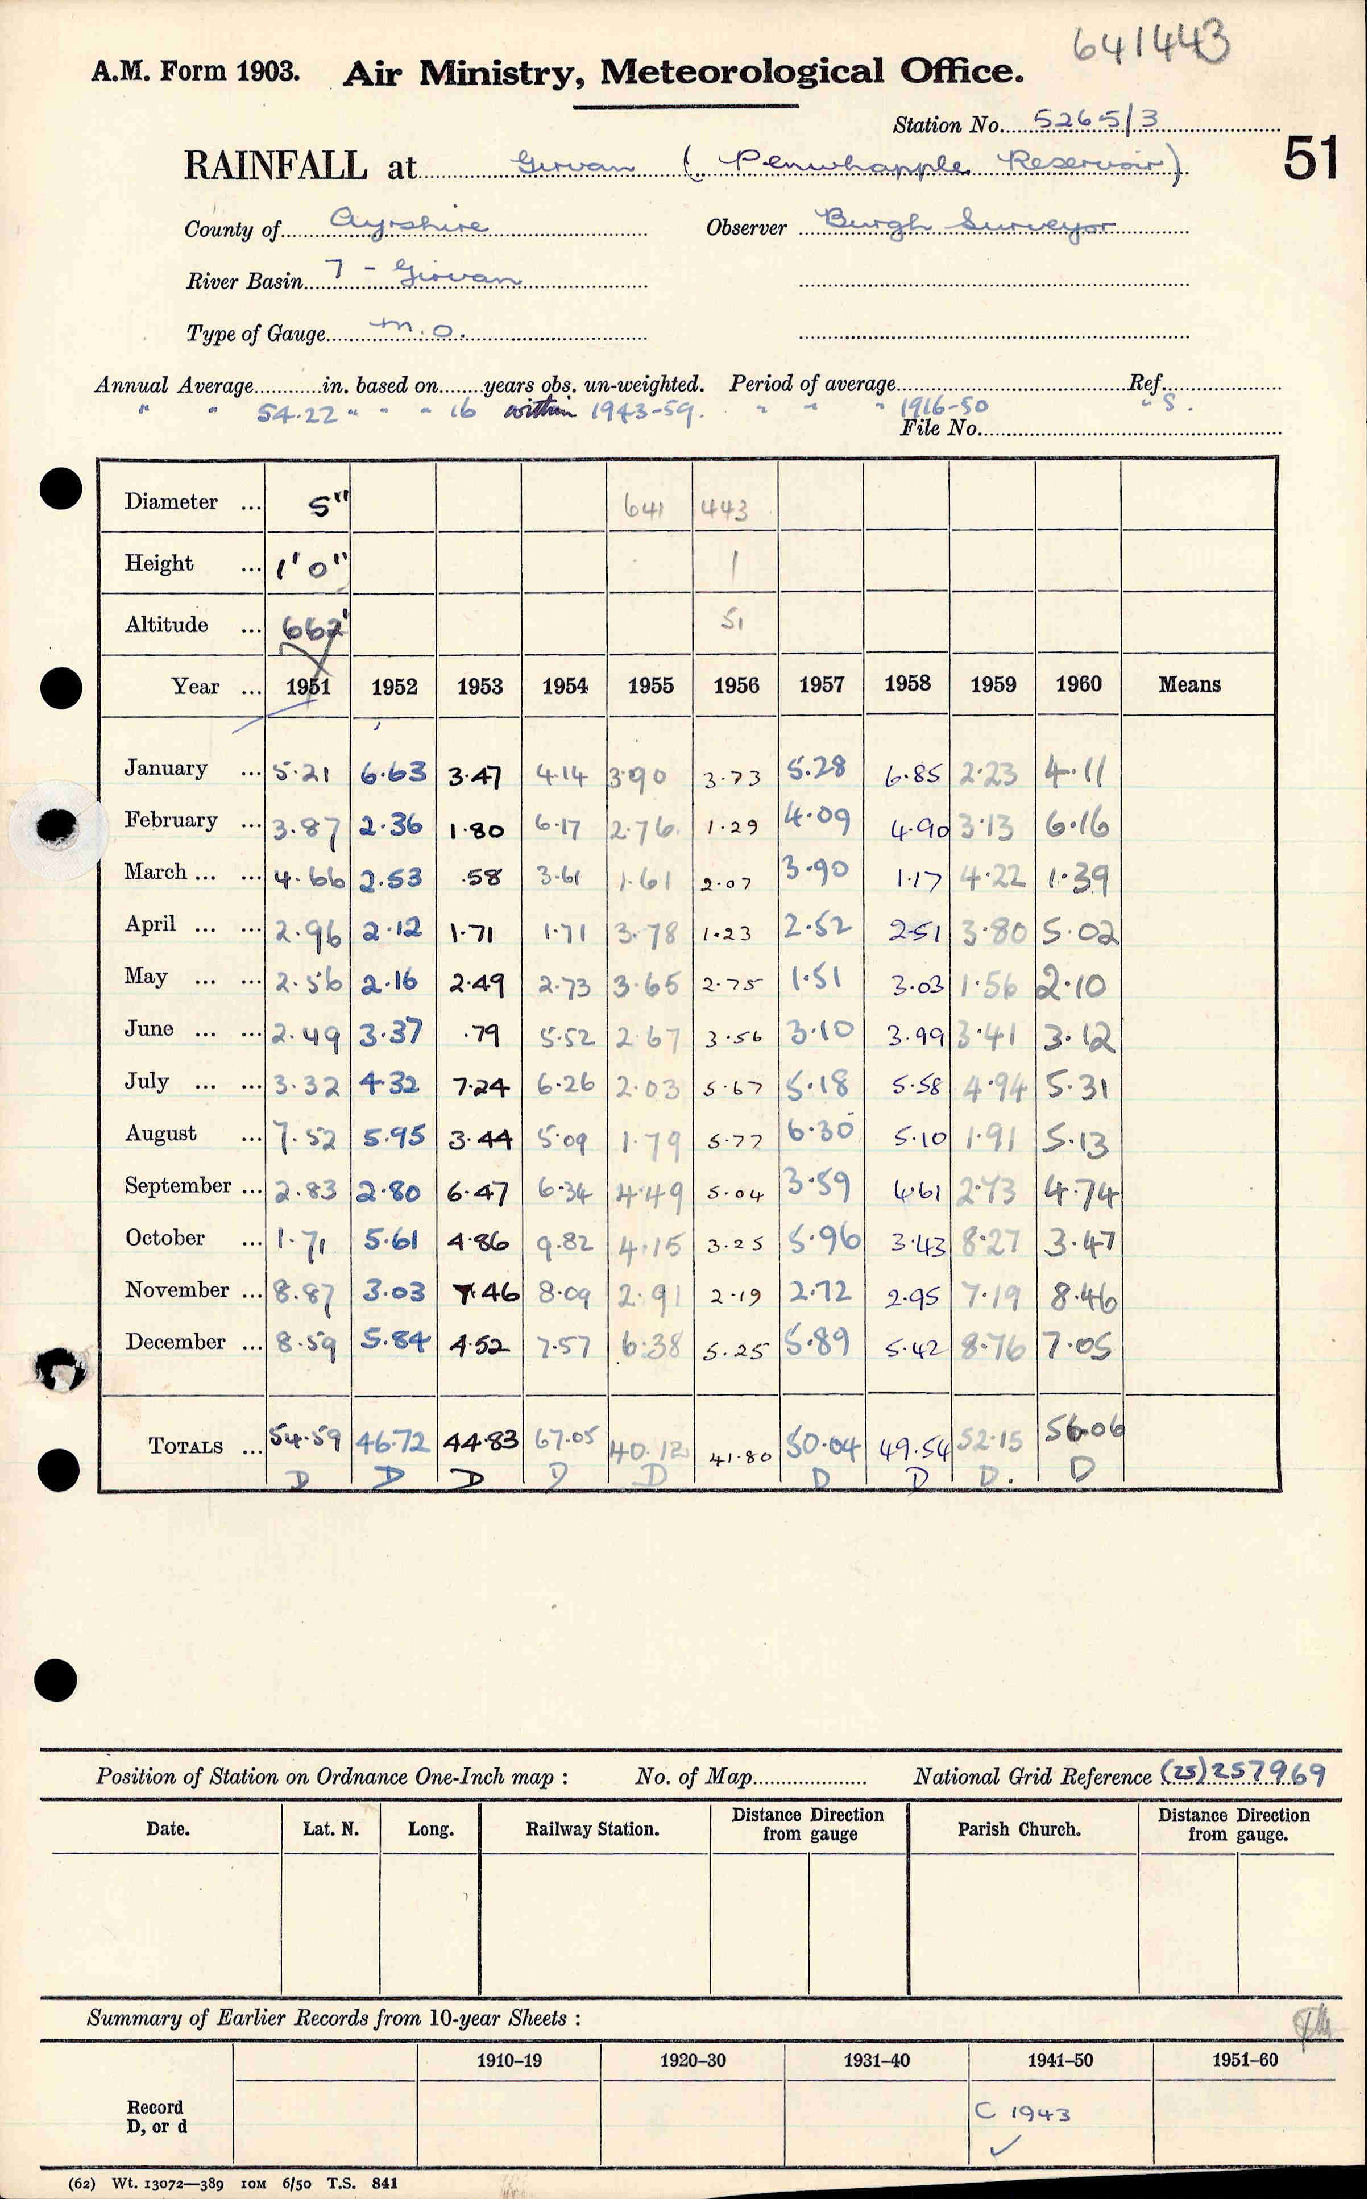 641443
A.M. Form 1903. Air Ministry, Meteorological Office.
Station No. 5265/3
RAINFALL at Girvan (Penwhapple Reservoir) 51
County of Ayrshire Observer Burgh Surveyor
River Basin 7 - Girvan
Type of Gauge M.O.
Annual Average in. based on years obs. un-weighted. Period of average Ref.
" " 54.22 " " " 16 within 1943-59. " " " 1916-50 " S.
File No.
Diameter ... 5" 641 443
Height ... 1' 0" 1
Altitude ... 662' 51
Year ... 1951 1952 1953 1954 1955 1956 1957 1958 1959 1960 Means
January ... 5.21 6.63 3.47 4.14 3.90 3.73 5.28 6.85 2.23 4.11
February ... 3.87 2.36 1.80 6.17 2.76 1.29 4.09 4.90 3.13 6.16
March ... ... 4.66 2.53 .58 3.61 1.61 2.07 3.90 1.17 4.22 1.39
April ... ... 2.96 2.12 1.71 1.71 3.78 1.23 2.52 2.51 3.80 5.02
May ... ... 2.56 2.16 2.49 2.73 3.65 2.75 1.51 3.03 1.56 2.10
June ... ... 2.49 3.37 .79 5.52 2.67 3.56 3.10 3.99 3.41 3.12
July ... ... 3.32 4.32 7.24 6.26 2.03 5.67 5.18 5.58 4.94 5.31
August ... 7.52 5.95 3.44 5.09 1.79 5.77 6.30 5.10 1.91 5.13
September ... 2.83 2.80 6.47 6.34 4.49 5.04 3.59 4.61 2.73 4.74
October ... 1.71 5.61 4.86 9.82 4.15 3.25 5.96 3.43 8.27 3.47
November ... 8.87 3.03 7.46 8.09 2.91 2.19 2.72 2.95 7.19 8.46
December ... 8.59 5.84 4.52 7.57 6.38 5.25 5.89 5.42 8.76 7.05
TOTALS ... 54.59 46.72 44.83 67.05 40.12 41.80 50.04 49.54 52.15 56.06
D D D D D D D D. D
Position of Station on Ordnance One-Inch map : No. of Map National Grid Reference (25)257969
Date. Lat. N. Long. Railway Station. Distance Direction from gauge Parish Church. Distance Direction from gauge.
Summary of Earlier Records from 10-year Sheets :
1910–19 1920–30 1931–40 1941–50 1951–60
Record
D, or d
C 1943
✓
(62) Wt. 13072—389 10M 6/50 T.S. 841